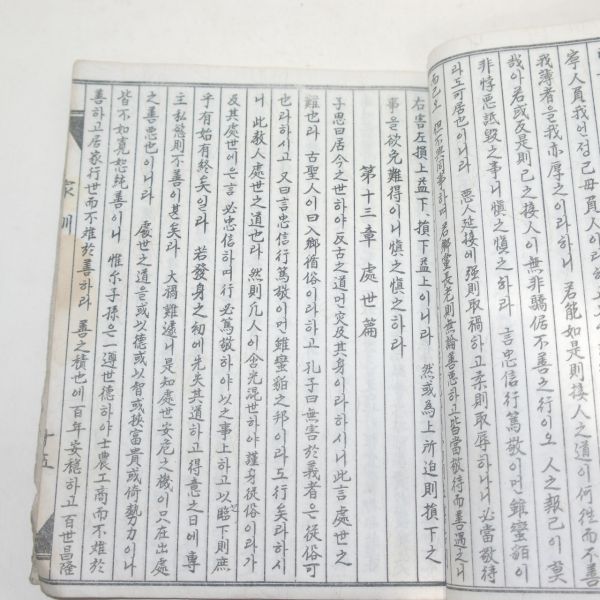 寧人負我언정 己毋負人이니라
我薄者을 我亦厚之이라하니 君能如是則接人之道이 何往而不善
哉아 若或反是則己之接人이 無非驕倨不善之行이오 人之報己이 莫
非悖惡詆毁之事니 愼之愼之하라 言忠信行篤敬이면 雖蠻貊이
라도可居也이니라 惡人延接에 强則取禍하고 柔則取辱하나니 必當敬待
而已오 但不與同事하며 若鄕黨長老則無論善惡하고 皆當敬待而善遇之니
右害左損上益下、損下益上이니라 然或爲上所迫則損下之
事을 欲免難得이니 愼之愼之하라
第十三章 處世篇
子思曰居今之世하야 反古之道면 灾及其身이라하시니 此言處世之
難也라 古聖人이 曰入鄕循俗이라하고 孔子曰無害於義者은 從俗可
也라하시고 又曰言忠信行篤敬이면 雖蠻貊之邦이라도 行矣라하시
니 此敎人處世之道也라 然則凡人이 含光混世하야 謹身從俗이라가
及其處世에은 言必忠信하며 行必篤敬하야 以之事上하고 以臨下則庶
乎有始有終矣일라 若發身之初에 先失其道하고 得意之日에 專
主私慾則不善이 甚矣라 大禍難逭니 是知處世安危之機이 只在出處
之善惡也이니라 處世之道을 或以德 或以智 或挾富貴 或倚勢力이나
皆不如寬恕純善이니 惟尔子孫은 一遵世德하야 士農工商而不難於
善하고 居家行世而不難於善하라 善之積也에 百年安穩하고 百世昌隆
家訓
十五